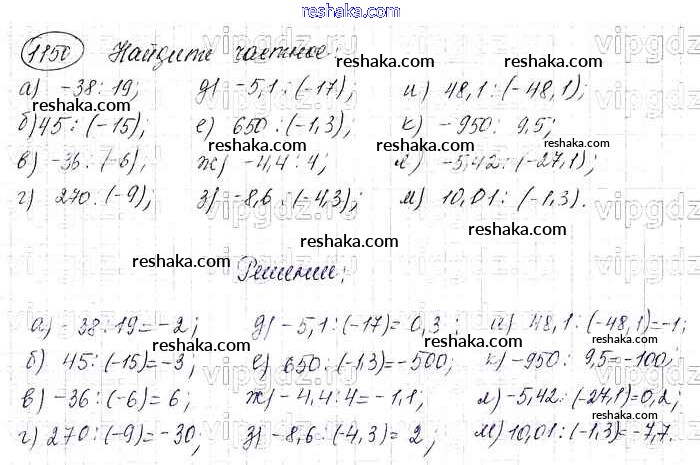 reshaka.com
1150 Найдите частное:
а) -38 : 19; д) -5,1 : (-17); и) 48,1 : (-48,1);
б) 45 : (-15); е) 650 : (-1,3); к) -950 : 9,5;
в) -36 : (-6); ж) -4,4 : 4; л) -5,42 : (-27,1);
г) 270 : (-9); з) -8,6 : (-4,3); м) 10,01 : (-1,3).
Решение:
а) -38 : 19 = -2; д) -5,1 : (-17) = 0,3; и) 48,1 : (-48,1) = -1;
б) 45 : (-15) = -3; е) 650 : (-1,3) = -500; к) -950 : 9,5 = -100;
в) -36 : (-6) = 6; ж) -4,4 : 4 = -1,1; л) -5,42 : (-27,1) = 0,2;
г) 270 : (-9) = -30; з) -8,6 : (-4,3) = 2; м) 10,01 : (-1,3) = -7,7.
reshaka.com